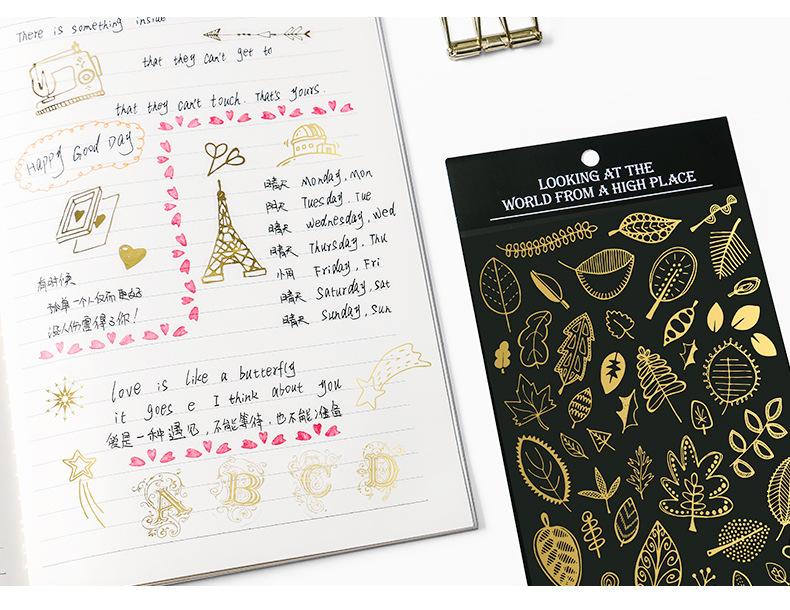 There is something inside
that they can't get to
that they can't touch. That's yours.
Happy Good Day
晴天 Monday, Mon
阴天 Tuesday, Tue
晴天 Wednesday, Wed
晴天 Thursday, Thu
小雨 Friday, Fri
晴天 Saturday, Sat
晴天 Sunday, Sun
有时候
没人伤害得了你!
love is like a butterfly
it goes e I think about you
爱是一种遇见,不能等待,也不能准备
A B C D
LOOKING AT THE
WORLD FROM A HIGH PLACE